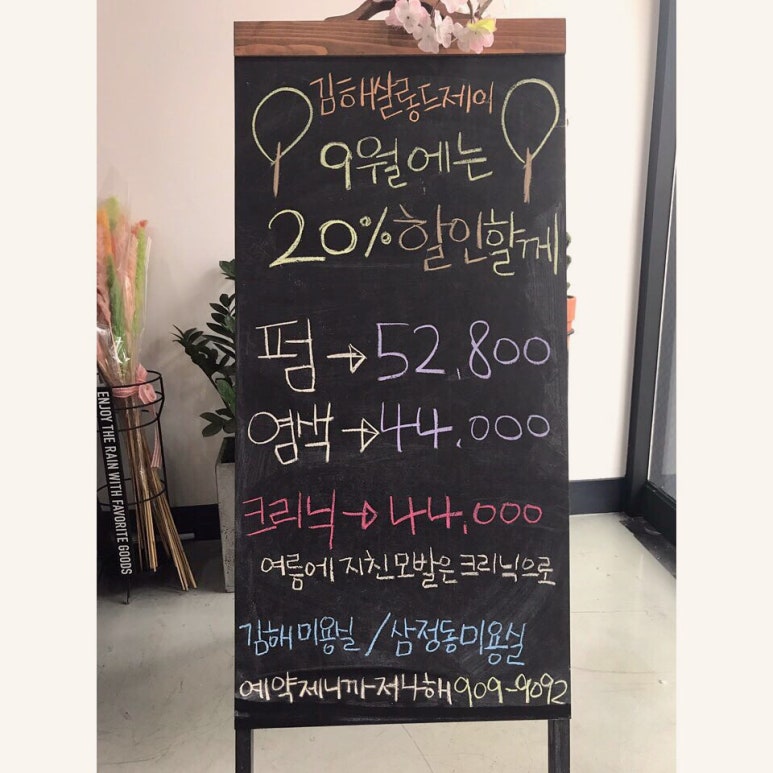 김해쌀롱드제이
9월에는
20% 할인할께
펌→52,800
염색→44,000
크리닉→44,000
여름에 지친모발은 크리닉으로
김해미용실/삼정동미용실
예약제니까 저나해 909-9092
ENJOY THE RAIN WITH FAVORITE GOODS